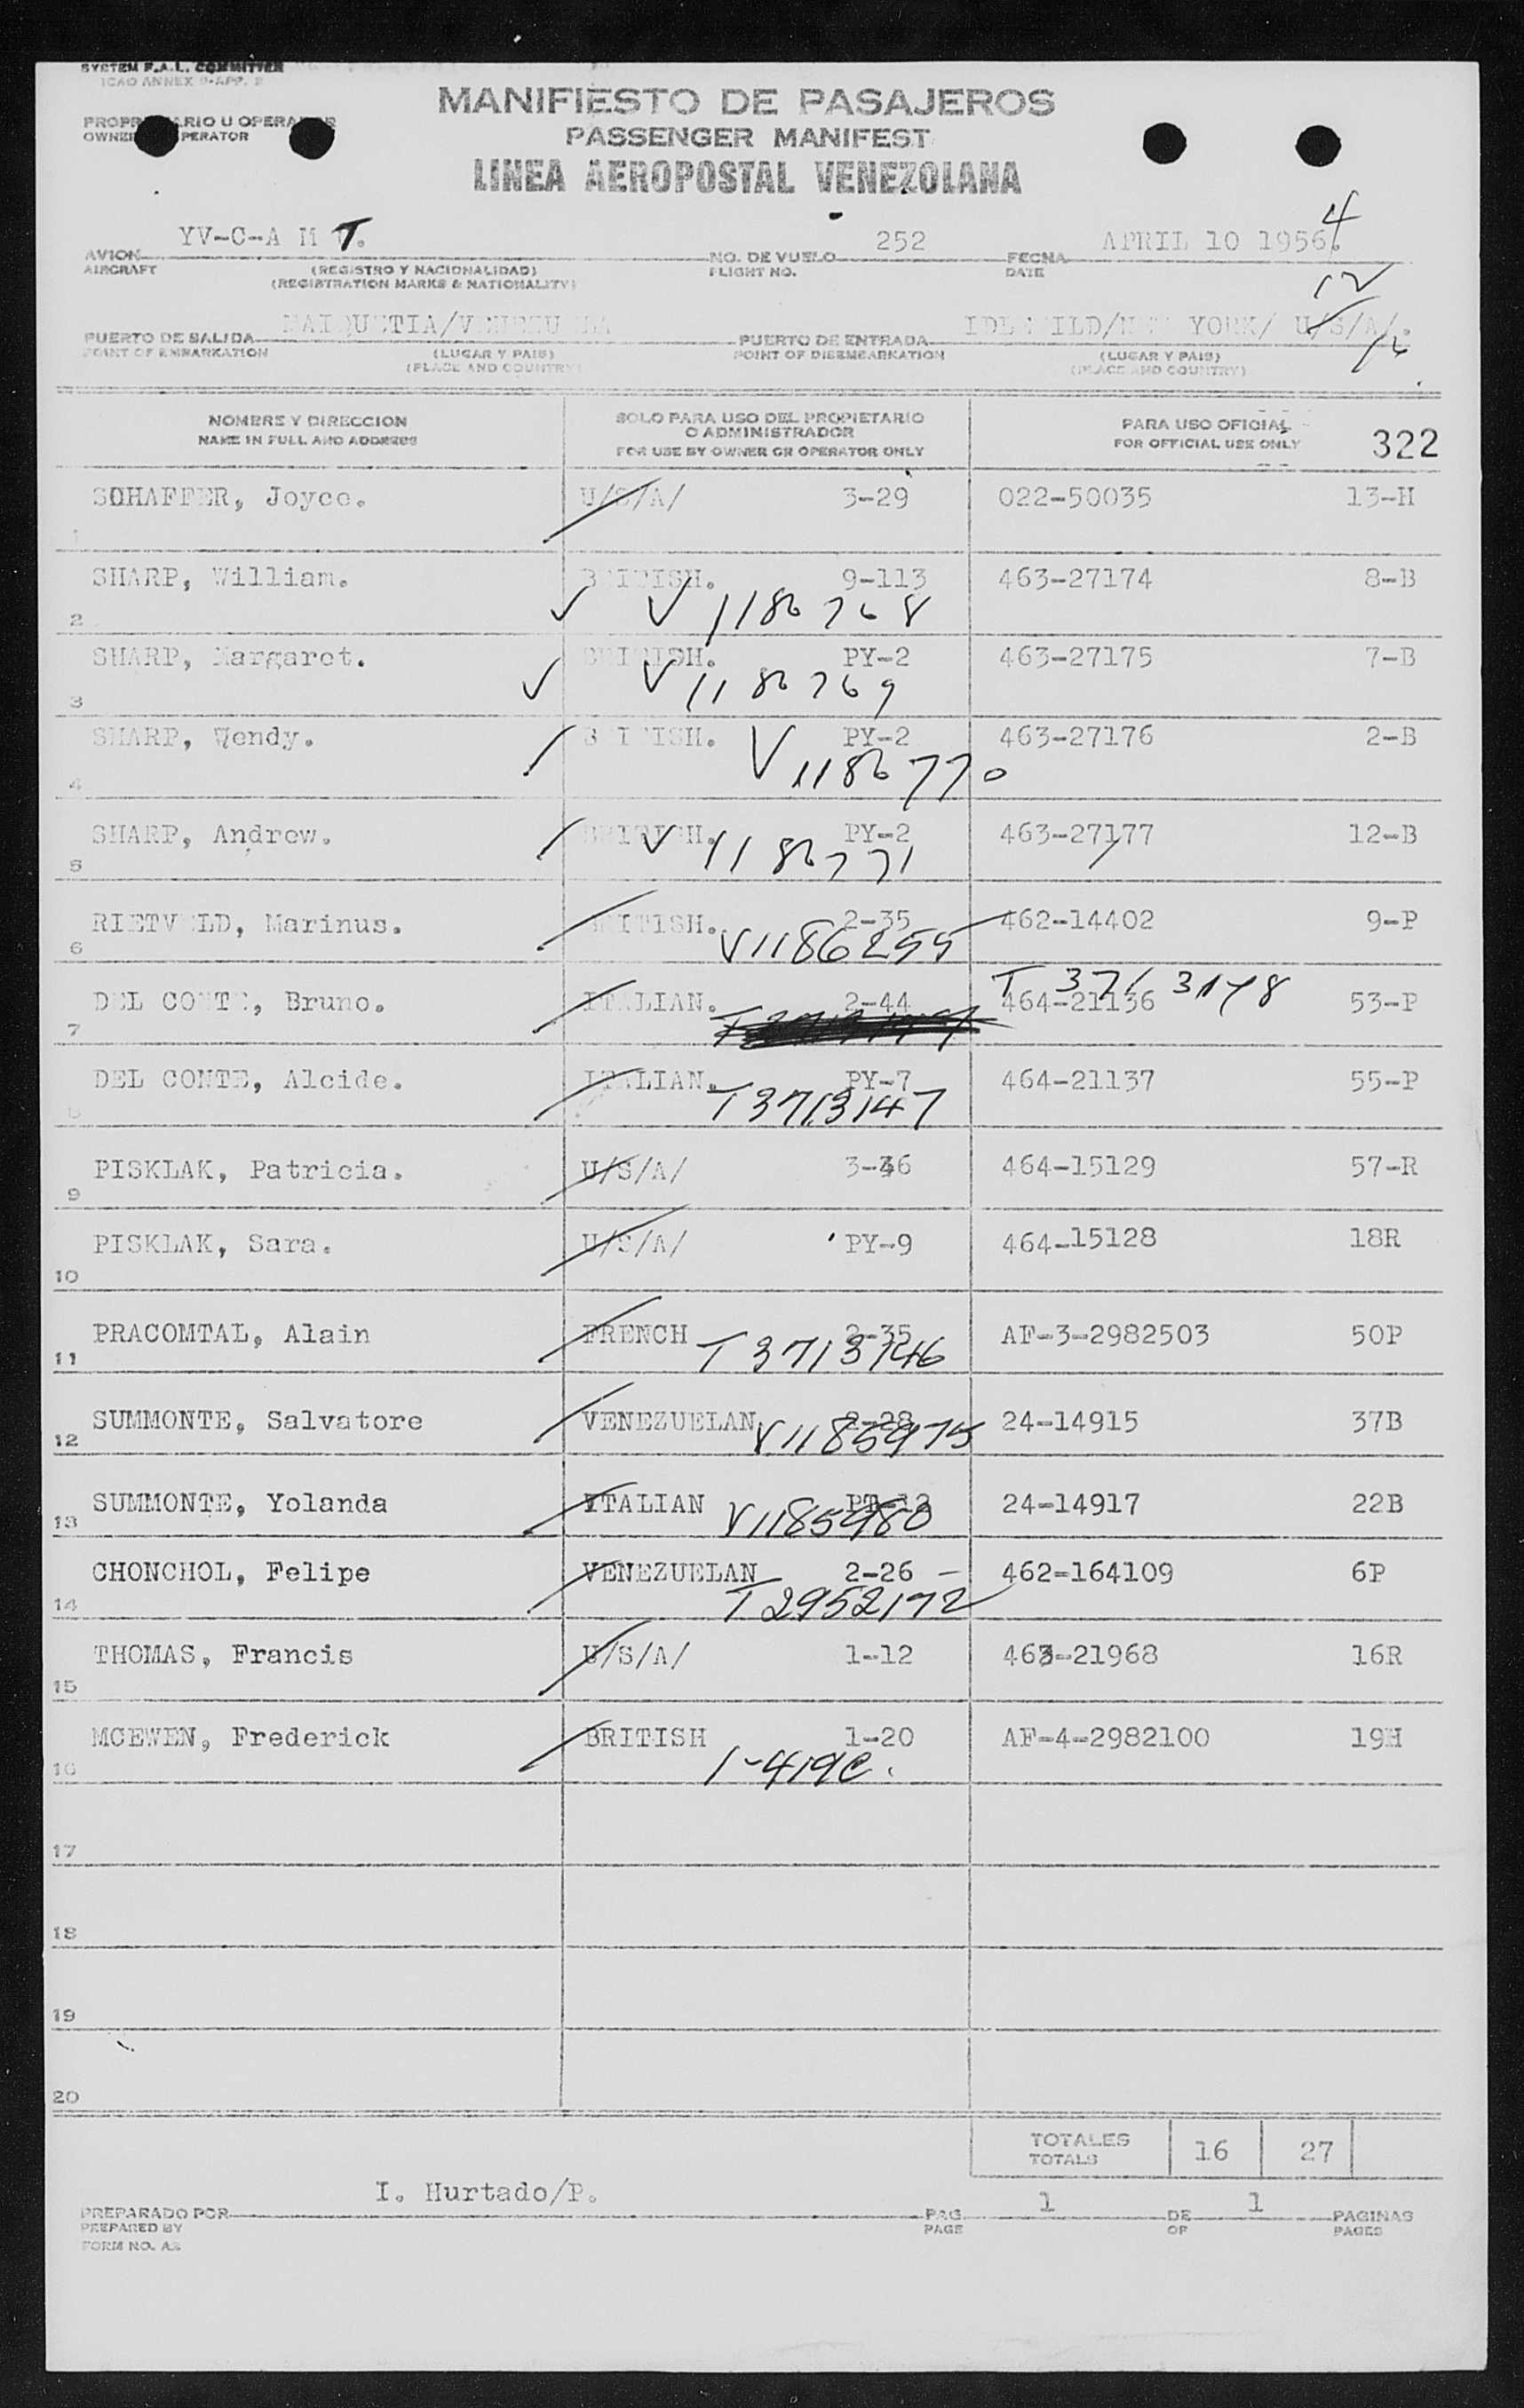 SYSTEM F.A.L. COMMITTEE
ICAO ANNEX 9-APP. 2
MANIFIESTO DE PASAJEROS
PASSENGER MANIFEST
LINEA AEROPOSTAL VENEZOLANA
4
YV-C-A M T. 252 APRIL 10 1956
AVION NO. DE VUELO FECHA
AIRCRAFT (REGISTRO Y NACIONALIDAD) FLIGHT NO. DATE
(REGISTRATION MARKS & NATIONALITY)
12
MAIQUETIA/VENEZUELA IDLEWILD/NEW YORK/ U/S/A/.
PUERTO DE SALIDA PUERTO DE ENTRADA
POINT OF EMBARKATION (LUGAR Y PAIS) POINT OF DISEMBARKATION (LUGAR Y PAIS)
(PLACE AND COUNTRY) (PLACE AND COUNTRY)
NOMBRE Y DIRECCION SOLO PARA USO DEL PROPIETARIO PARA USO OFICIAL
NAME IN FULL AND ADDRESS O ADMINISTRADOR FOR OFFICIAL USE ONLY 322
FOR USE BY OWNER OR OPERATOR ONLY
SCHAFFER, Joyce. U/S/A/ 3-29 022-50035 13-H
1
SHARP, William. BRITISH. 9-113 463-27174 8-B
2 V 1186768
SHARP, Margaret. BRITISH. PY-2 463-27175 7-B
3 V 1186769
SHARP, Wendy. BRITISH. PY-2 463-27176 2-B
4 V 1186770
SHARP, Andrew. BRITISH. PY-2 463-27177 12-B
5 V 1186771
RIETVELD, Marinus. BRITISH. 2-35 462-14402 9-P
6 V1186255
T 3713148
DEL CONTE, Bruno. ITALIAN. 2-44 464-21136 53-P
7
DEL CONTE, Alcide. ITALIAN. PY-7 464-21137 55-P
8 T3713147
PISKLAK, Patricia. U/S/A/ 3-36 464-15129 57-R
9
PISKLAK, Sara. U/S/A/ PY-9 464-15128 18R
10
PRACOMTAL, Alain FRENCH 2-35 AF-3-2982503 50P
11 T 3713146
SUMMONTE, Salvatore VENEZUELAN 2-28 24-14915 37B
12 V1185975
SUMMONTE, Yolanda ITALIAN PT-12 24-14917 22B
13 V1185980
CHONCHOL, Felipe VENEZUELAN 2-26 462-164109 6P
14 T2952172
THOMAS, Francis U/S/A/ 1-12 463-21968 16R
15
MCEWEN, Frederick BRITISH 1-20 AF-4-2982100 19H
16 1-419C.
17
18
19
20
TOTALES 16 27
TOTALS
I. Hurtado/P. 1 1
PREPARADO POR PAG. DE PAGINAS
PREPARED BY PAGE OF PAGES
FORM NO. A2